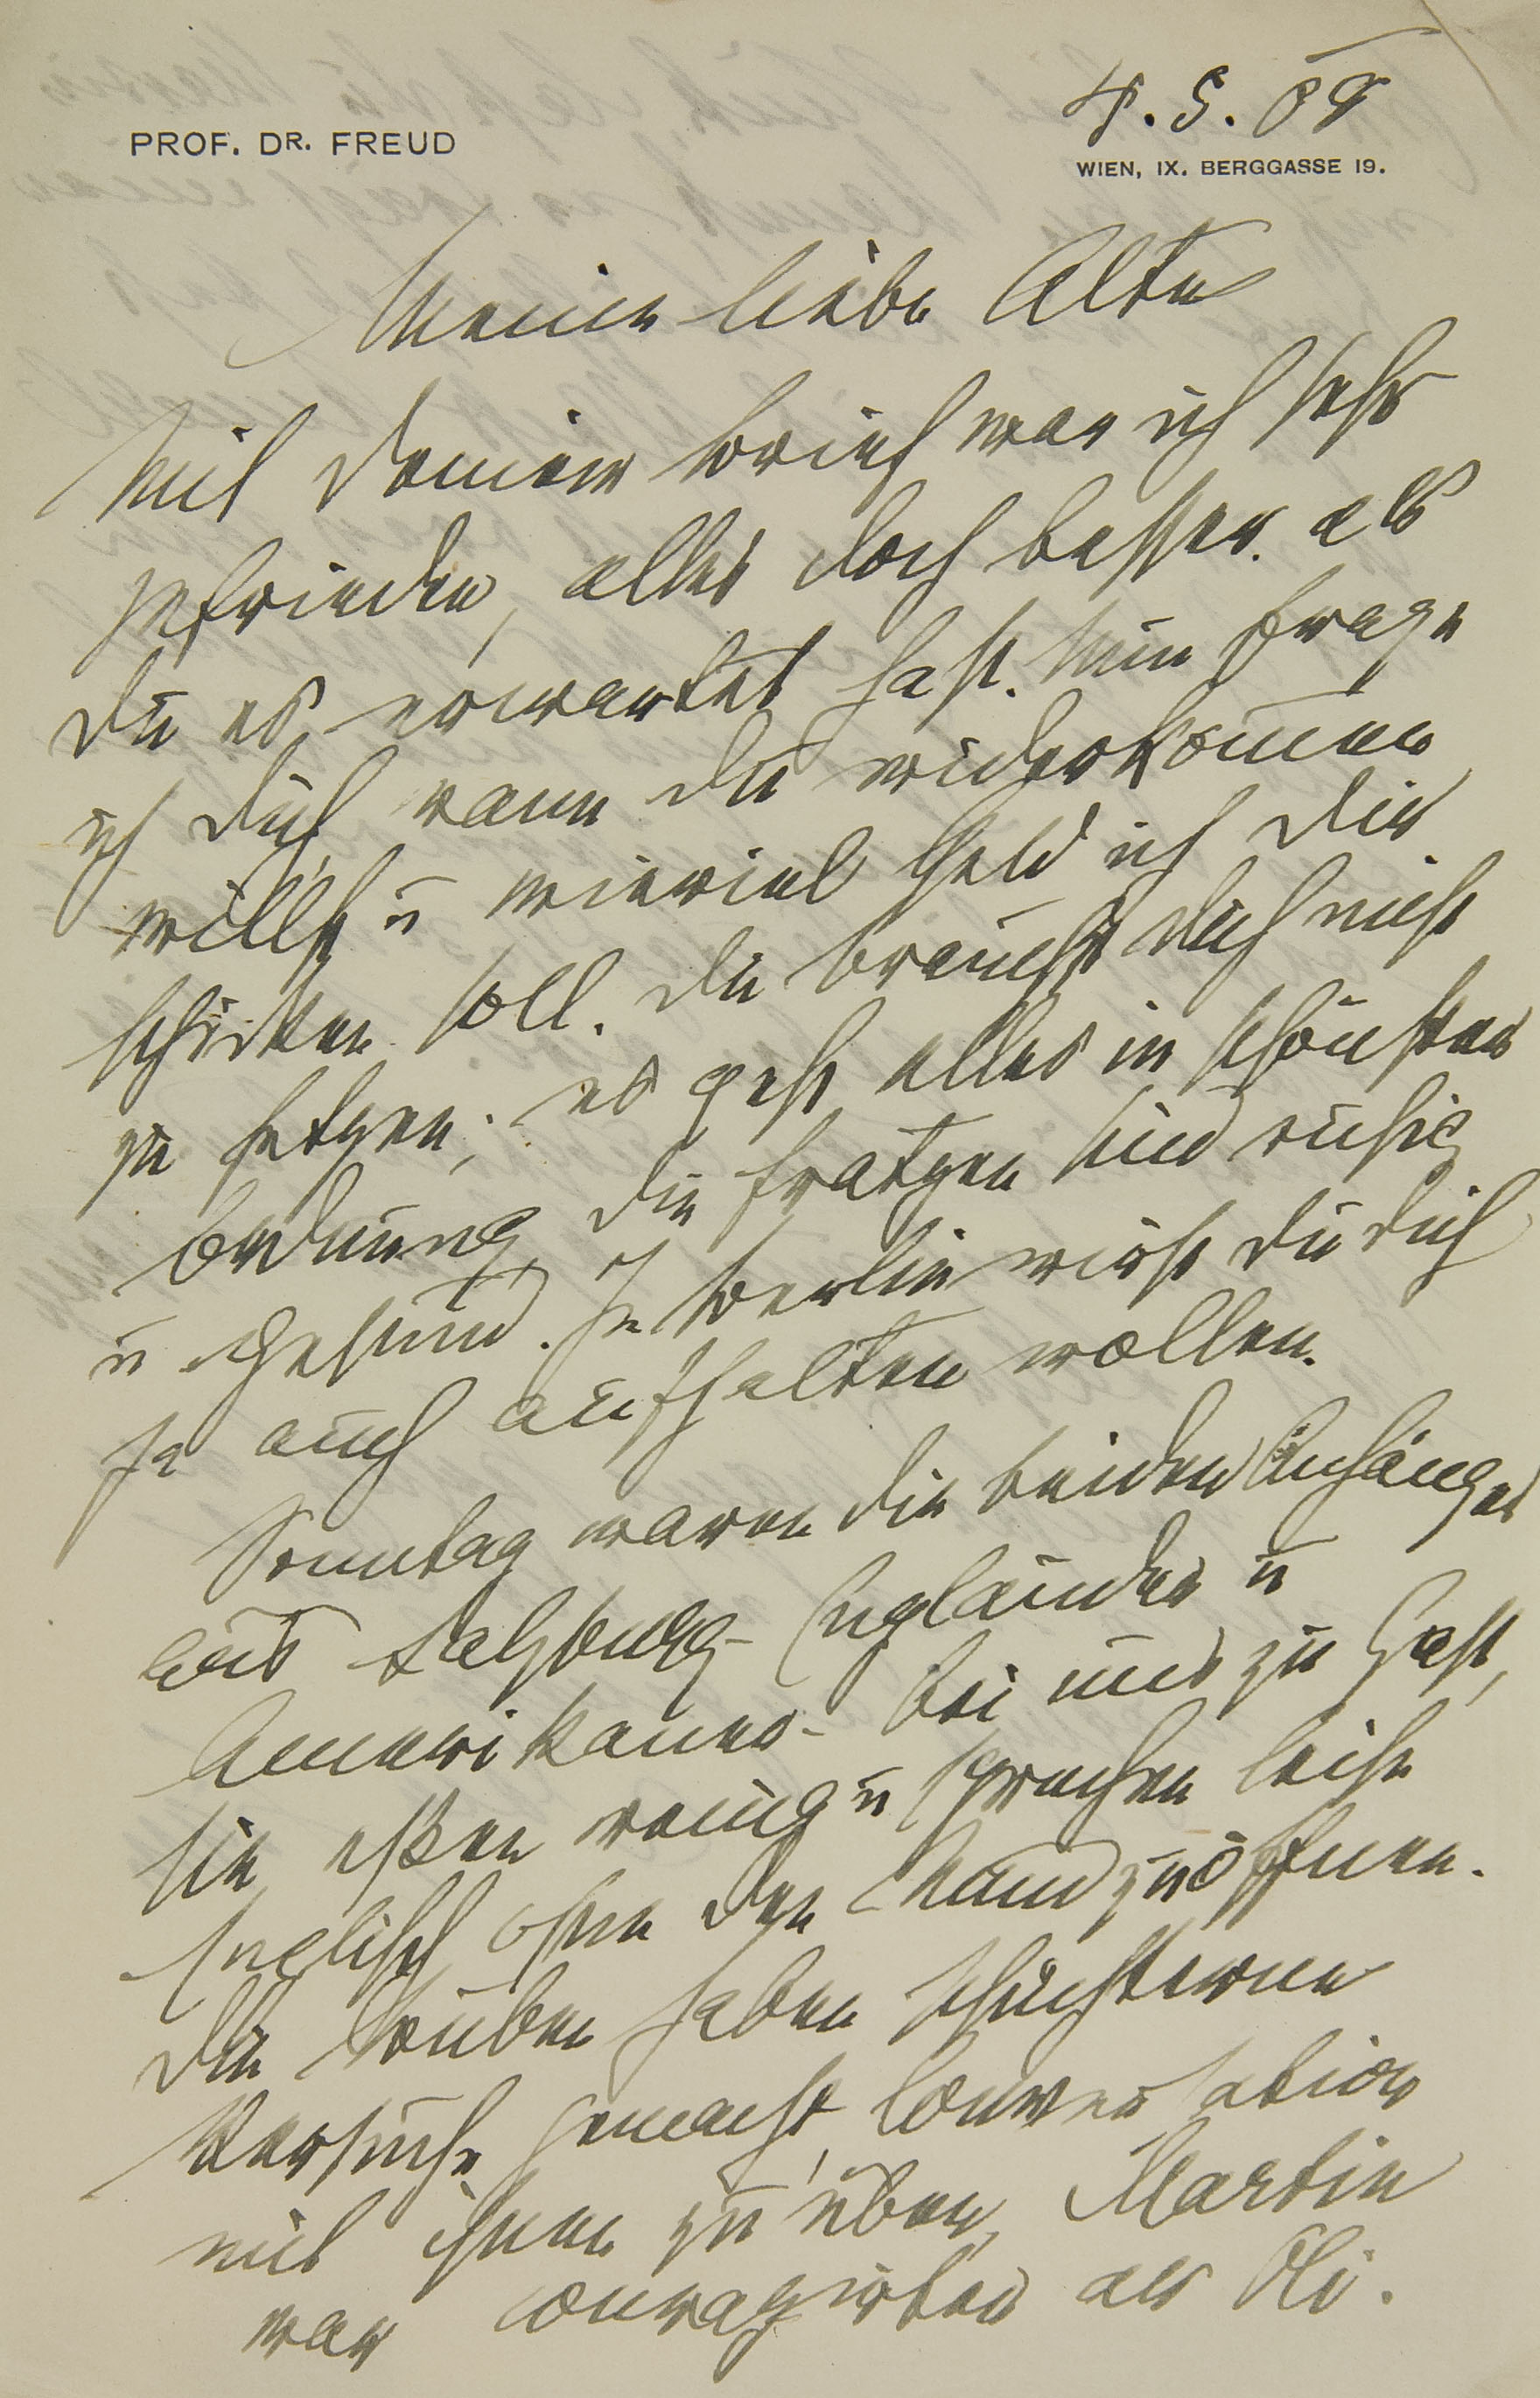 PROF. DR. FREUD
4. 5. 08
WIEN, IX. BERGGASSE 19.
Meine liebe Alte
Mit Deinem Brief war ich sehr
zufrieden, alles doch besser als
Du es erwartet hast. Nun frage
ich Dich, wann Du wiederkommen
willst u wieviel Geld ich Dir
schicken soll. Du brauchst Dich nicht
zu hetzen; es geht alles in schönster
Ordnung, die Fratzen sind ruhig
u gesund. In Berlin wirst Du Dich
ja auch aufhalten wollen.
Sonntag waren die beiden Anhänger
aus Salzburg – Engländer u
Amerikaner – bei uns zu Gast,
sie aßen wenig u sprachen leise
Englisch ohne den Mund zu öffnen.
Die Buben haben schüchterne
Versuche gemacht, Conversation
mit ihnen zu üben, Martin
war couragirter als Oli.